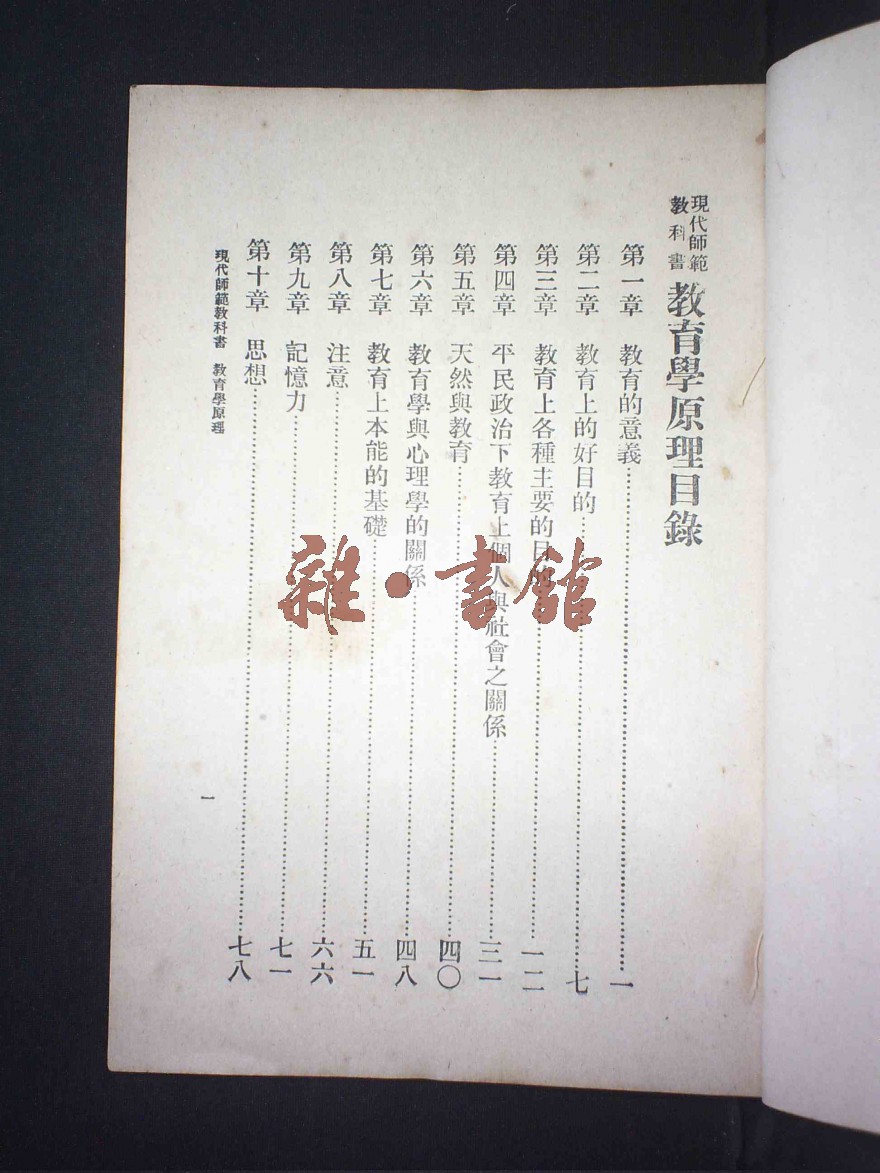 現代師範教科書 教育學原理目錄
第一章 教育的意義……一
第二章 教育上的好目的……七
第三章 教育上各種主要的目的……一二
第四章 平民政治下教育上個人與社會之關係……三一
第五章 天然與教育……四〇
第六章 教育學與心理學的關係……四八
第七章 教育上本能的基礎……五一
第八章 注意……六六
第九章 記憶力……七一
第十章 思想……七八
現代師範教科書 教育學原理
一
雜·書館